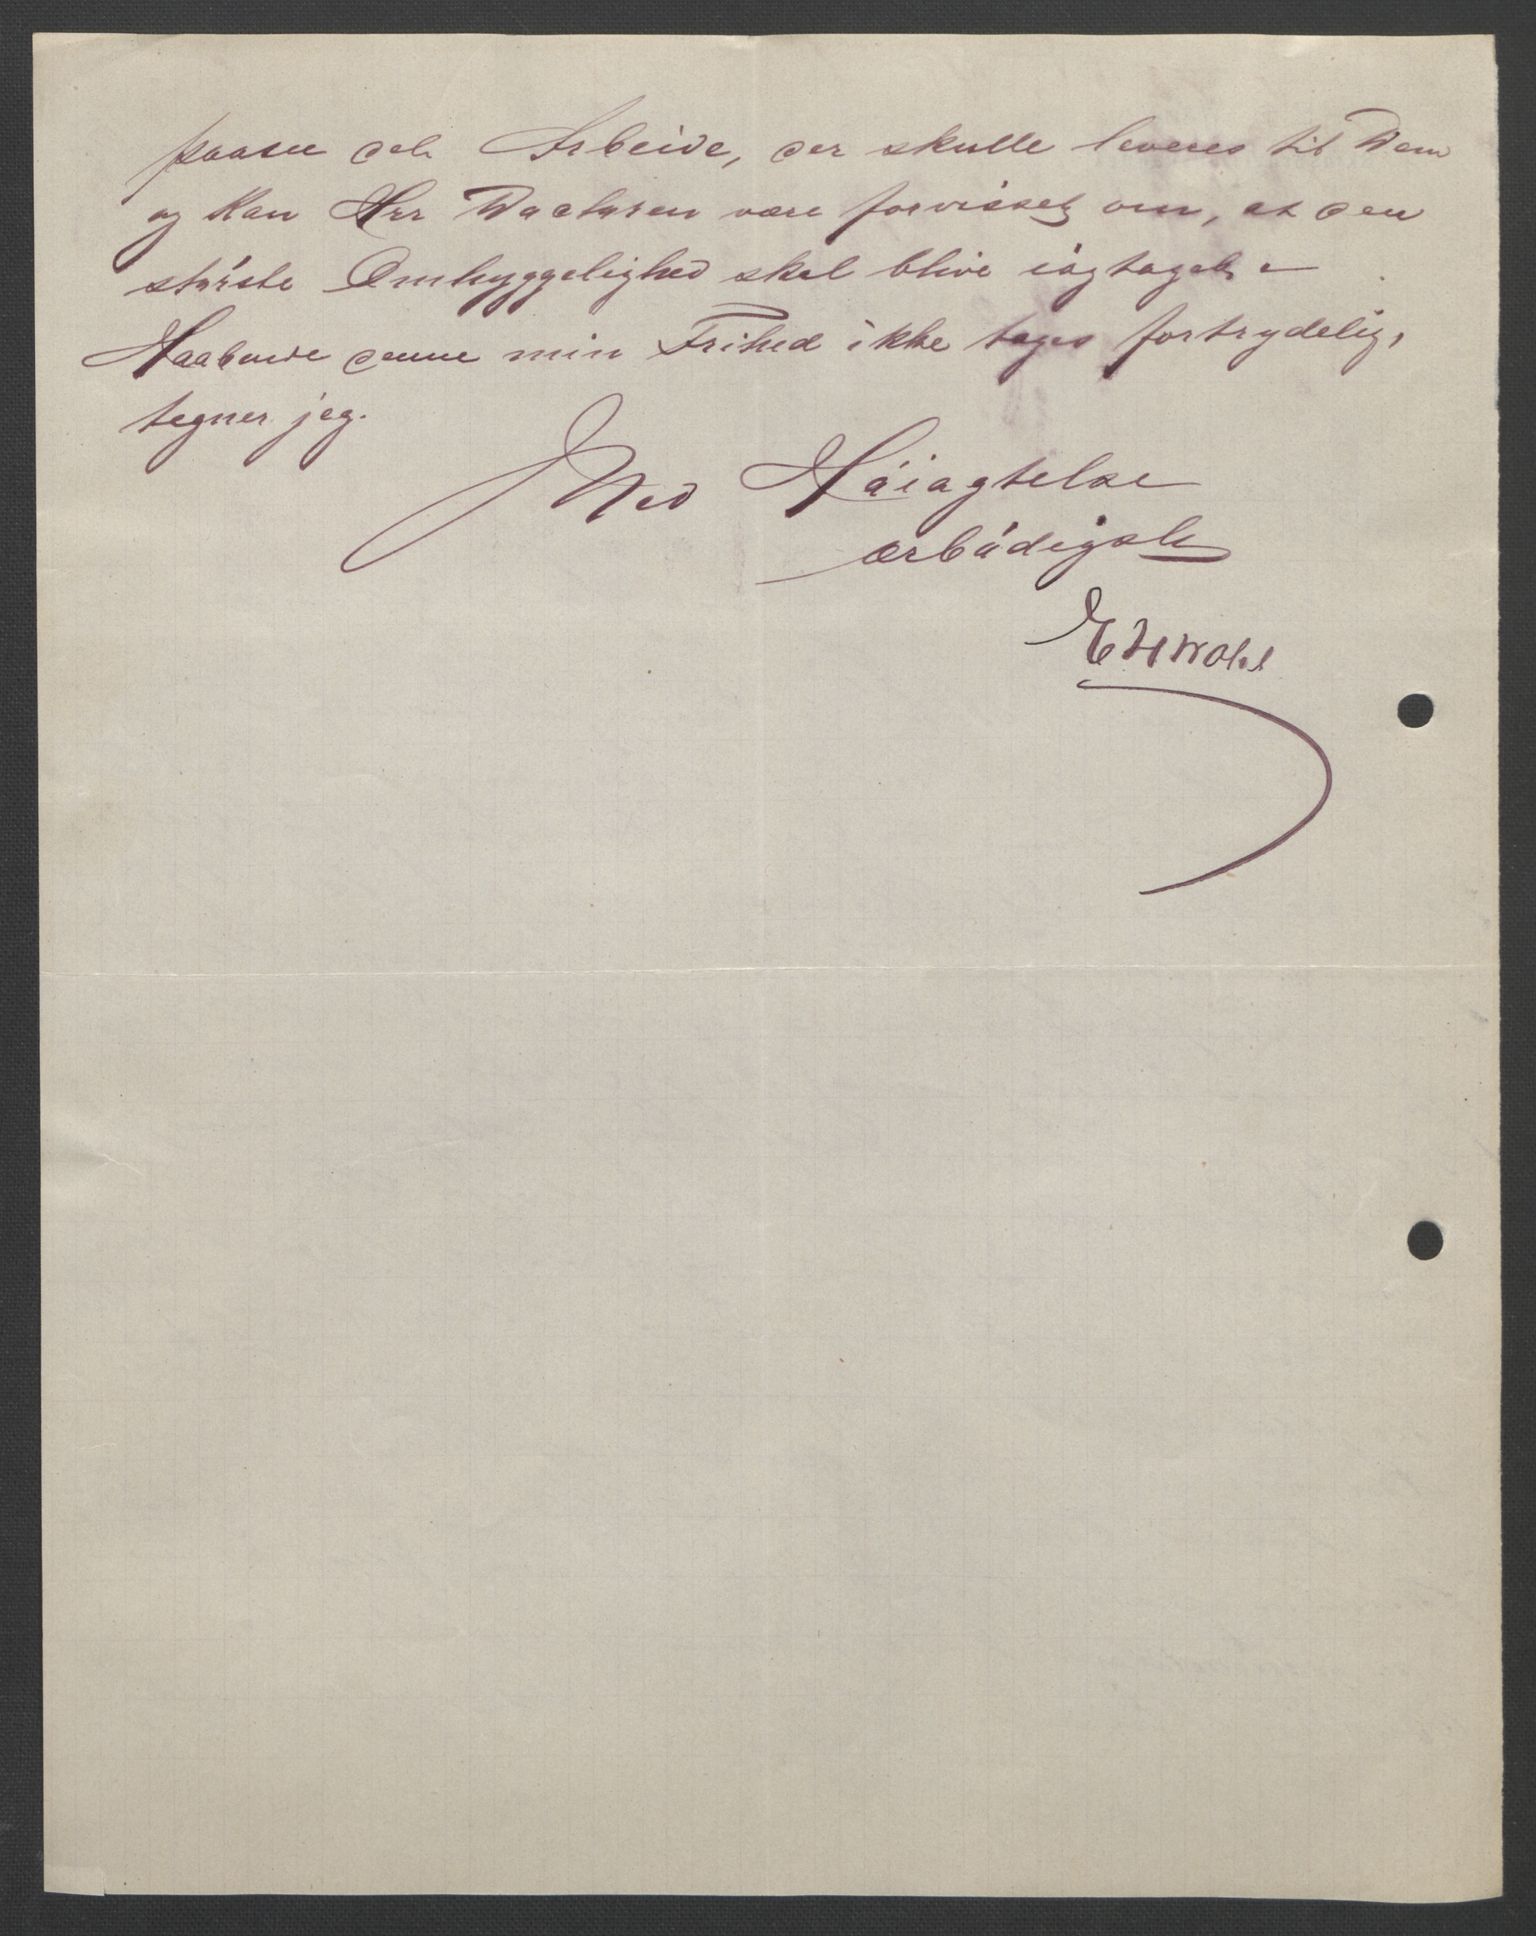 paase det Arbeide, der skulle leveres til Dem
og kan Herr være forvisset om, at den
störste Omhyggelighed skal blive iagtaget. –
Haabende denne min Frihed ikke tages fortrydelig,
tegner jeg.
Med Höiagtelse
ærbödigst
E H Wohl